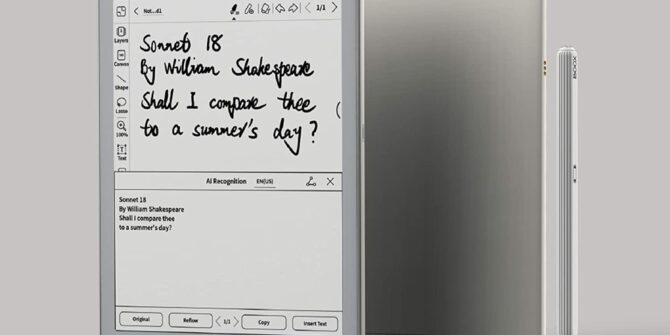 Not...d1
1/1
Layers
Canvas
Shape
Lasso
100%
Text
Sonnet 18
By William Shakespeare
Shall I compare thee
to a summer's day?
(
AI Recognition
EN(US)
Sonnet 18
By William Shakespeare
Shall I compare thee
to a summer's day?
Original
Reflow
1/1
Copy
Insert Text
BOOX